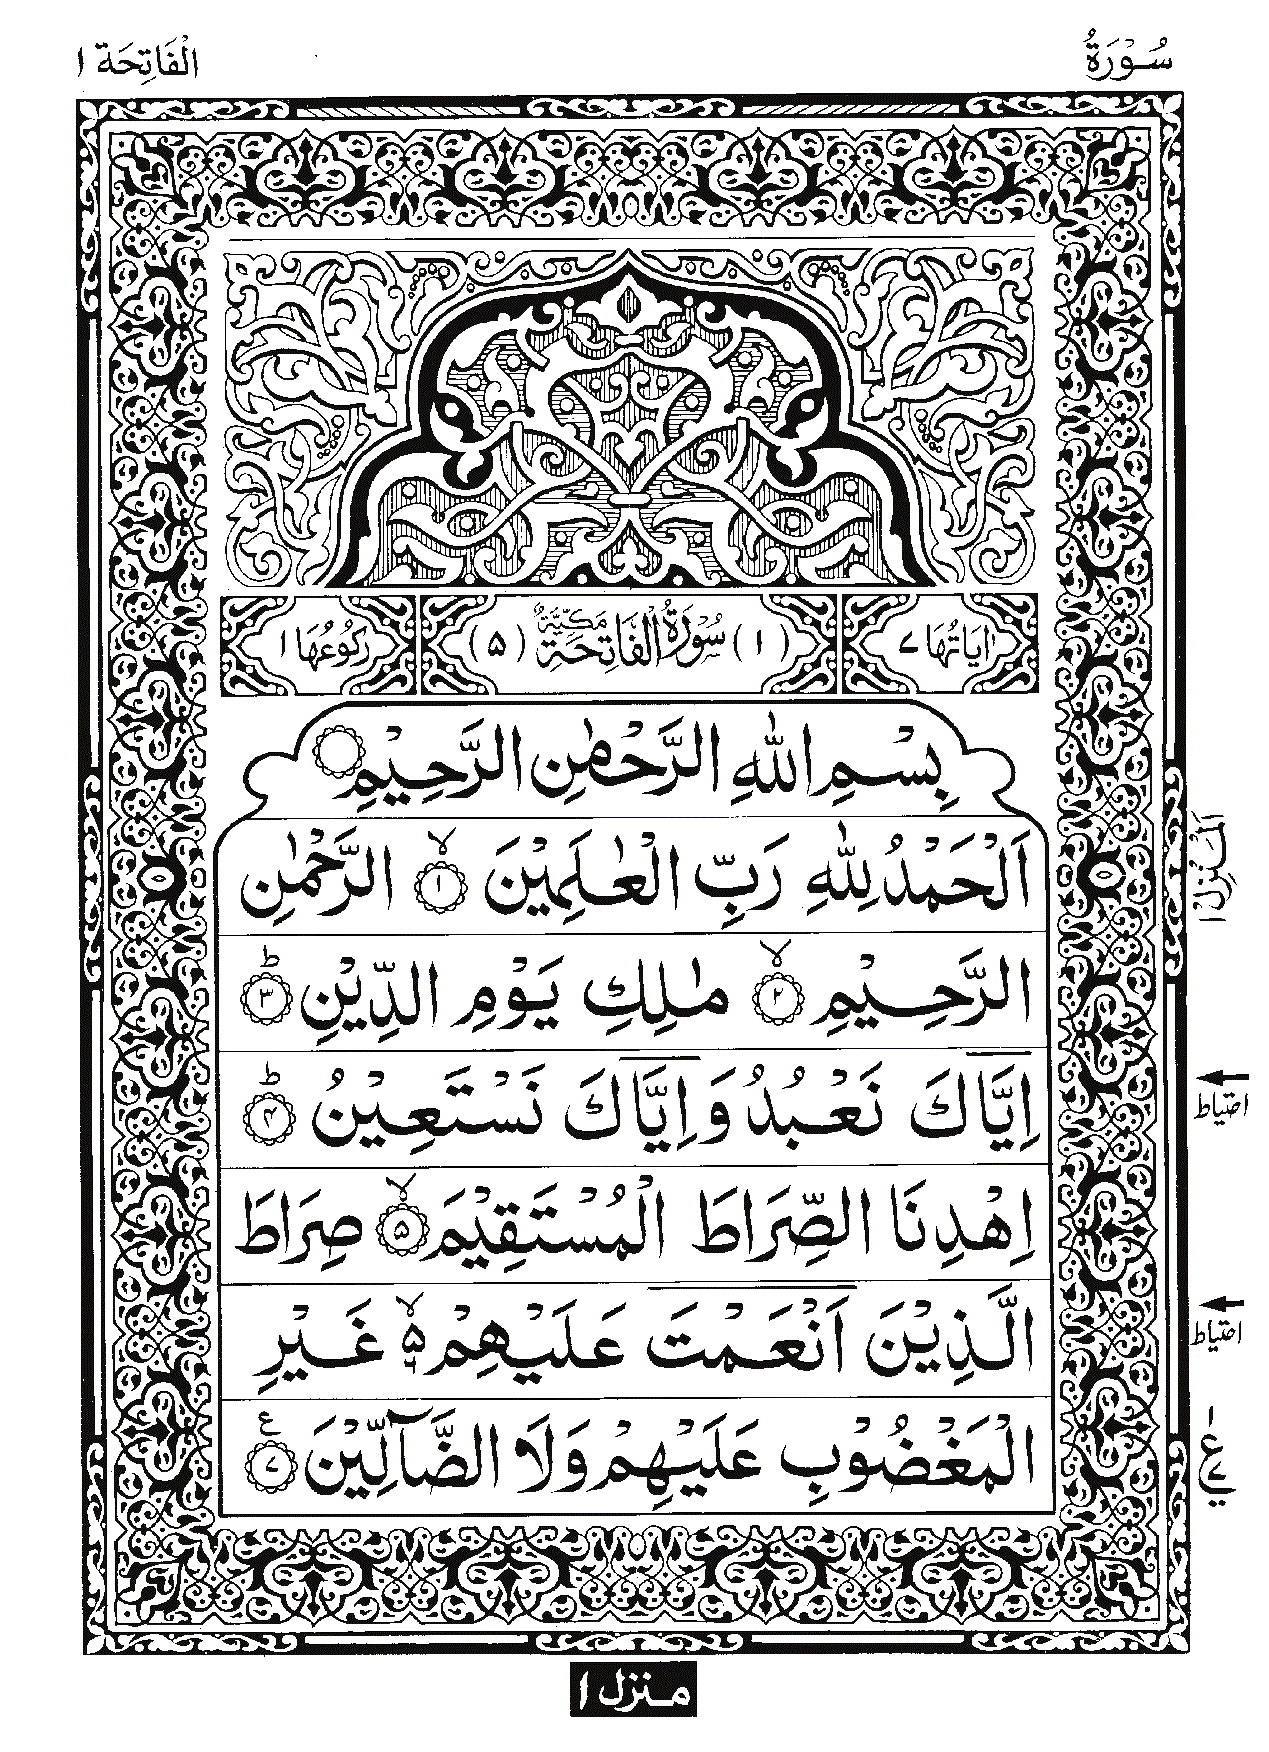 سُوْرَةُ الْفَاتِحَة ١
اٰيَاتُهَا ٧ (١) سُوْرَةُ الْفَاتِحَةِ مَكِّيَّةٌ (٥) رُكُوْعُهَا ١
بِسْمِ اللهِ الرَّحْمٰنِ الرَّحِيْمِ
اَلْحَمْدُ لِلّٰهِ رَبِّ الْعٰلَمِيْنَ ۙ﴿۱﴾ الرَّحْمٰنِ
الرَّحِيْمِ ۙ﴿۲﴾ مٰلِكِ يَوْمِ الدِّيْنِ ؕ﴿۳﴾
اِيَّاكَ نَعْبُدُ وَ اِيَّاكَ نَسْتَعِيْنُ ؕ﴿۴﴾
اِهْدِنَا الصِّرَاطَ الْمُسْتَقِيْمَ ۙ﴿۵﴾ صِرَاطَ
الَّذِيْنَ اَنْعَمْتَ عَلَيْهِمْ ۙ۵ ٦ غَيْرِ
الْمَغْضُوْبِ عَلَيْهِمْ وَلَا الضَّآلِّيْنَ ع﴿۷﴾
اَلْمَنْزِلُ ١
احتياط
احتياط
١
ع
٧
منزل ١